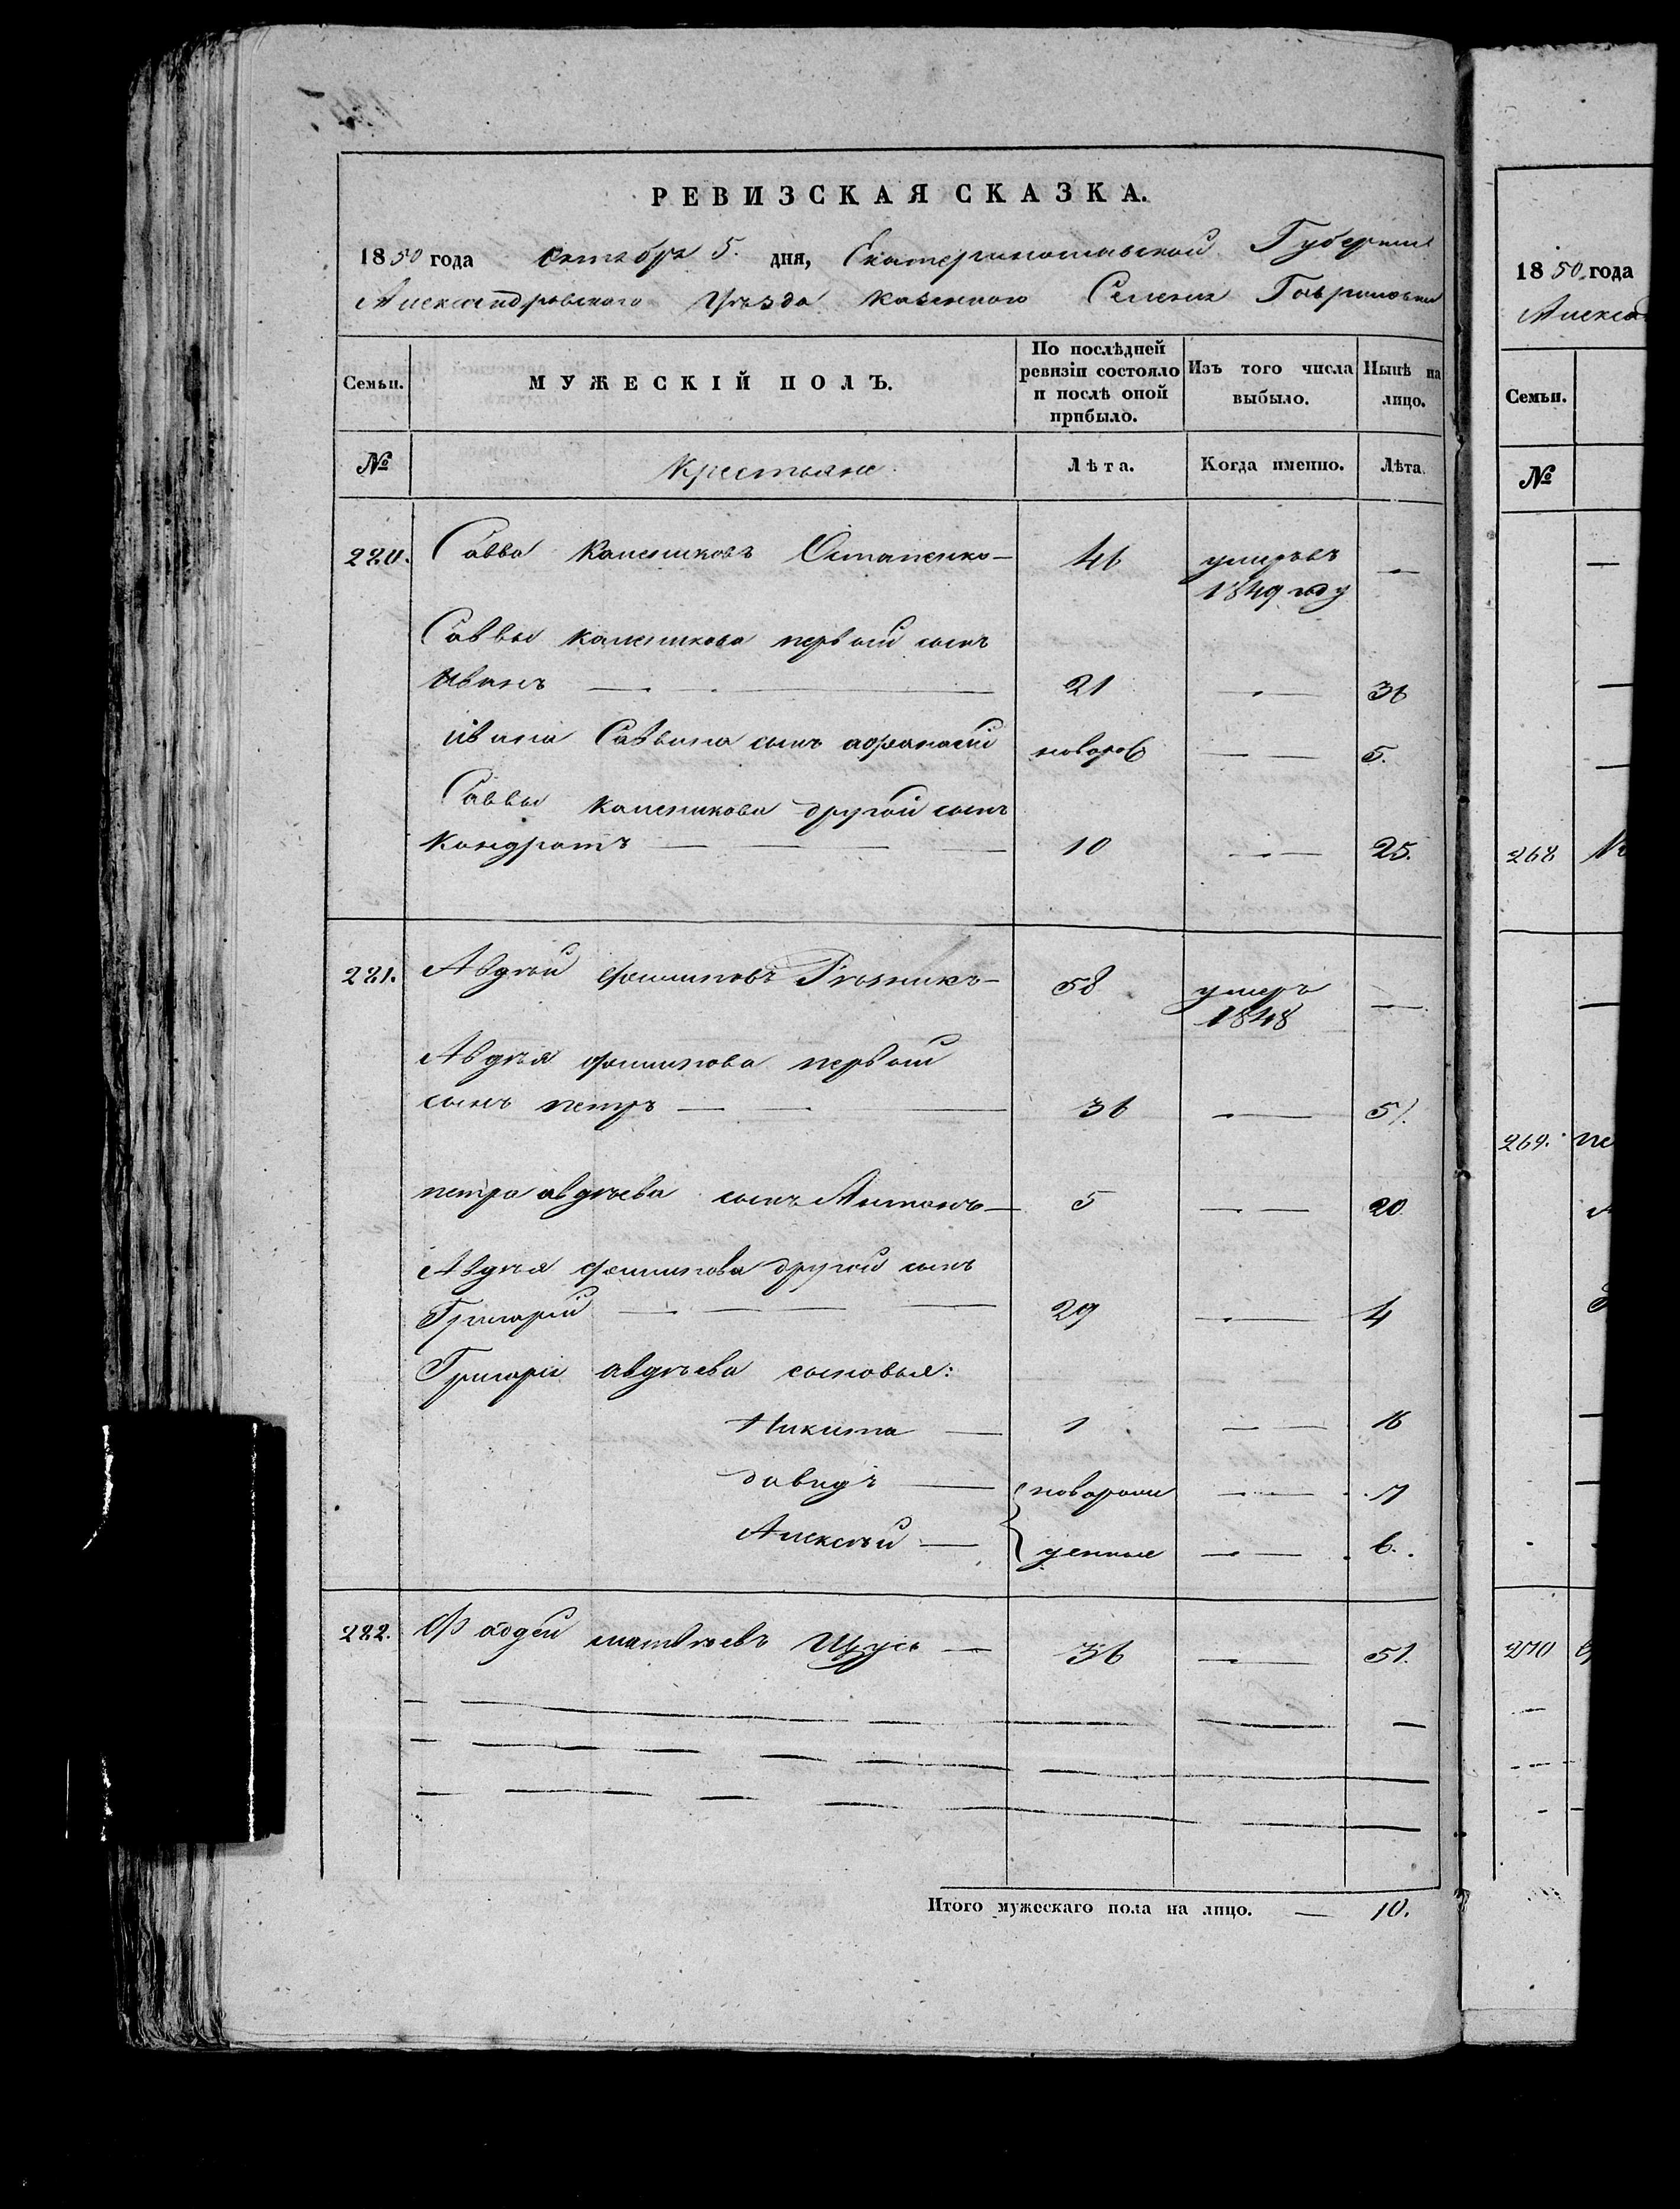 РЕВИЗСКАЯ СКАЗКА.
1850 года октября 5. дня, Екатеринославской Губернии
Александровского Уѣзда казенного Селения Гавриловки
Семьи.
МУЖЕСКІЙ ПОЛЪ.
По послѣдней ревизіи состояло и послѣ оной прибыло.
Изъ того числа выбыло.
Нынѣ на лицо.
№
Крестьяне.
Лѣта.
Когда именно.
Лѣта.
220. Савва Калениковъ Остапенко — 46 умеръ въ —
1849 году
Саввы Каленикова первый сынъ
Иванъ — 21 — 36
Ивана Саввина сынъ афанасій новорож — 5.
Саввы Каленикова другой сынъ
Кондратъ — 10 — 25.
221. Авдѣй филиповъ Рѣзникъ — 58 умеръ —
1848
Авдѣя филипова первый
сынъ петръ — 36 — 51.
петра авдѣева сынъ Антонъ — 5 — 20
Авдѣя филипова другой сынъ
Григорій — 29 — 4
Григорія авдѣева сыновья:
Никита — 1 — 16
давидъ — новорож — 7
Алексѣй — денные — 6.
222. Фадей матвѣевъ Щусь — 36 — 51.
Итого мужескаго пола на лицо. — 10.
1850 года
Алекса
Семьи.
№
268
269. пе
270